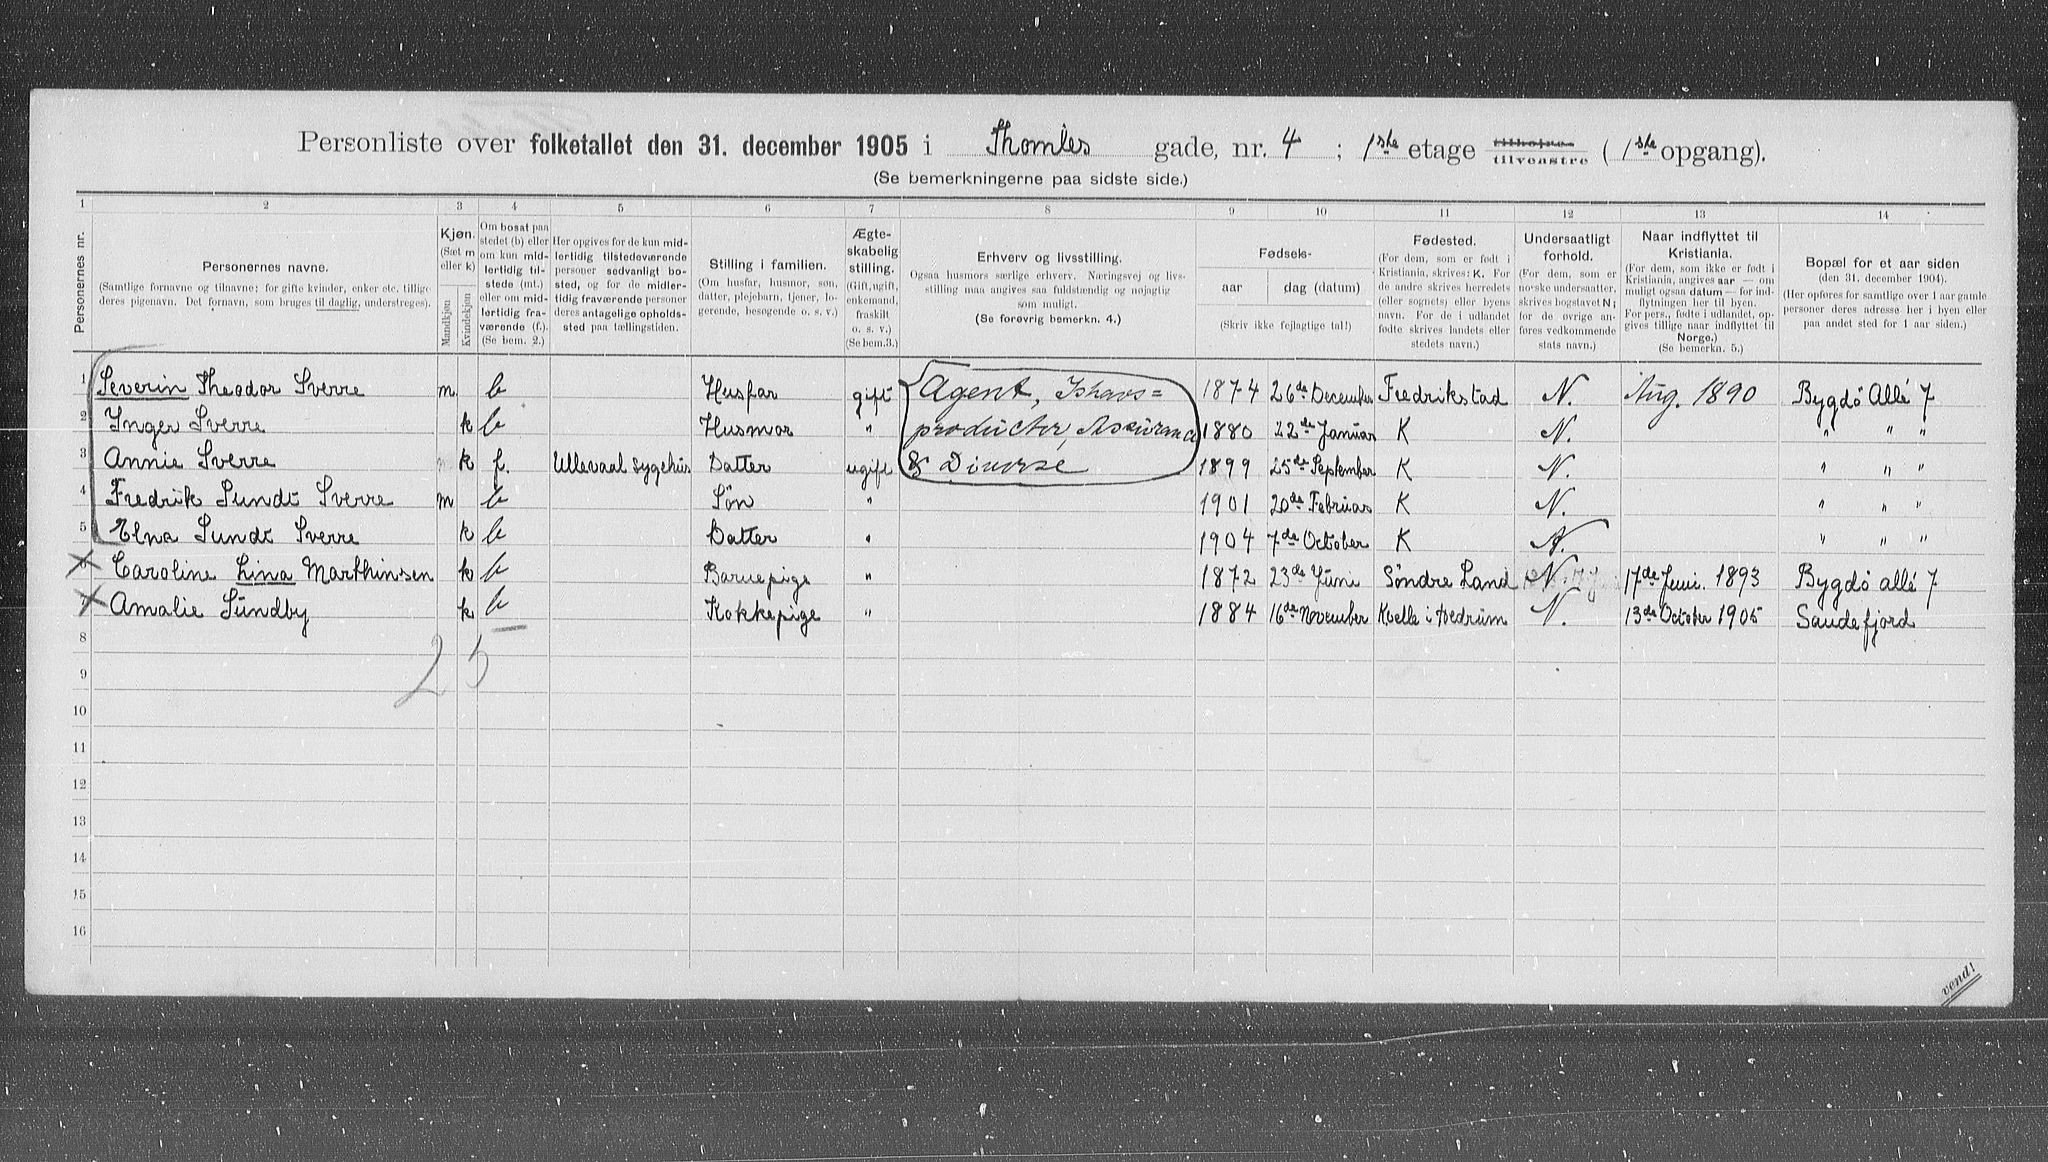 Personliste over folketallet den 31. december 1905 i Thomles gade, nr. 4 ; 1ste etage tilhøjre tilvenstre ( 1ste opgang).
(Se bemerkningerne paa sidste side.)
1 2 3 4 5 6 7 8 9 10 11 12 13 14
Personernes nr.
Personernes navne.
(Samtlige fornavne og tilnavne; for gifte kvinder, enker etc. tillige
deres pigenavn. Det fornavn, som bruges til daglig, understreges).
Kjøn.
(Sæt m
eller k)
Mandkjøn
Kvindekjøn
Om bosat paa
stedet (b) eller
om kun mid-
lertidig til-
stede (mt.)
eller om mid-
lertidig fra-
værende (f.).
(Se bem. 2.)
Her opgives for de kun mid-
lertidig tilstedeværende
personer sedvanligt bo-
sted, og for de midler-
tidig fraværende personer
deres antagelige opholds-
sted paa tællingstiden.
Stilling i familien.
(Om husfar, husmor, søn,
datter, plejebarn, tjener, lo-
gerende, besøgende o. s. v.)
Ægte-
skabelig
stilling.
(Gift, ugift,
enkemand,
fraskilt
o. s. v.)
(Se bem.3.)
Erhverv og livsstilling.
Ogsaa husmors særlige erhverv. Næringsvej og livs-
stilling maa angives saa fuldstændig og nøjagtig
som muligt.
(Se forøvrig bemerkn. 4.)
Fødsels-
aar
dag (datum)
(Skriv ikke fejlagtige tal!)
Fødested.
(For dem, som er født i
Kristiania, skrives: K. For
de andre skrives herredets
(eller sognets) eller byens
navn. For de i udlandet
fødte skrives landets eller
stedets navn.)
Undersaatligt
forhold.
(For dem, som er
norske undersaatter,
skrives bogstavet N;
for de øvrige an-
føres vedkommende
stats navn.)
Naar indflyttet til
Kristiania.
(For dem, som ikke er født i
Kristiania, angives aar — om
muligt ogsaa datum — for ind-
flytningen her til byen.
For pers., fødte i udlandet, op-
gives tillige naar indflyttet til
Norge.)
(Se bemerkn. 5.)
Bopæl for et aar siden
(den 31. december 1904).
(Her opføres for samtlige over 1 aar gamle
personer deres adresse her i byen eller
paa andet sted for 1 aar siden.)
1 Severin Theodor Sverre m b Husfar gift Agent, Ishavs= 1874 26de December Fredrikstad N. Aug. 1890 Bygdö Allé 7
2 Inger Sverre k b Husmor " producter, Assurance 1880 22de Januar K N. " " "
3 Annie Sverre k f. Ullevaal sygehus Datter ugift & Diverse 1899 25de September K N. " " "
4 Fredrik Sundt Sverre m b Søn " 1901 20de Februar K N. " " "
5 Elna Sundt Sverre k b Datter " 1904 7de October K N. " " "
6 Caroline Lina Marthinsen k b Barnepige " 1872 23de Juni Söndre Land N. 17de Juni. 1893 Bygdö allé 7
7 Amalie Sundby k b Kokkepige " 1884 16de November Kvelle i Hedrum N. 13de October 1905 Sandefjord
8
2 5
9
10
11
12
13
14
15
16
vend!